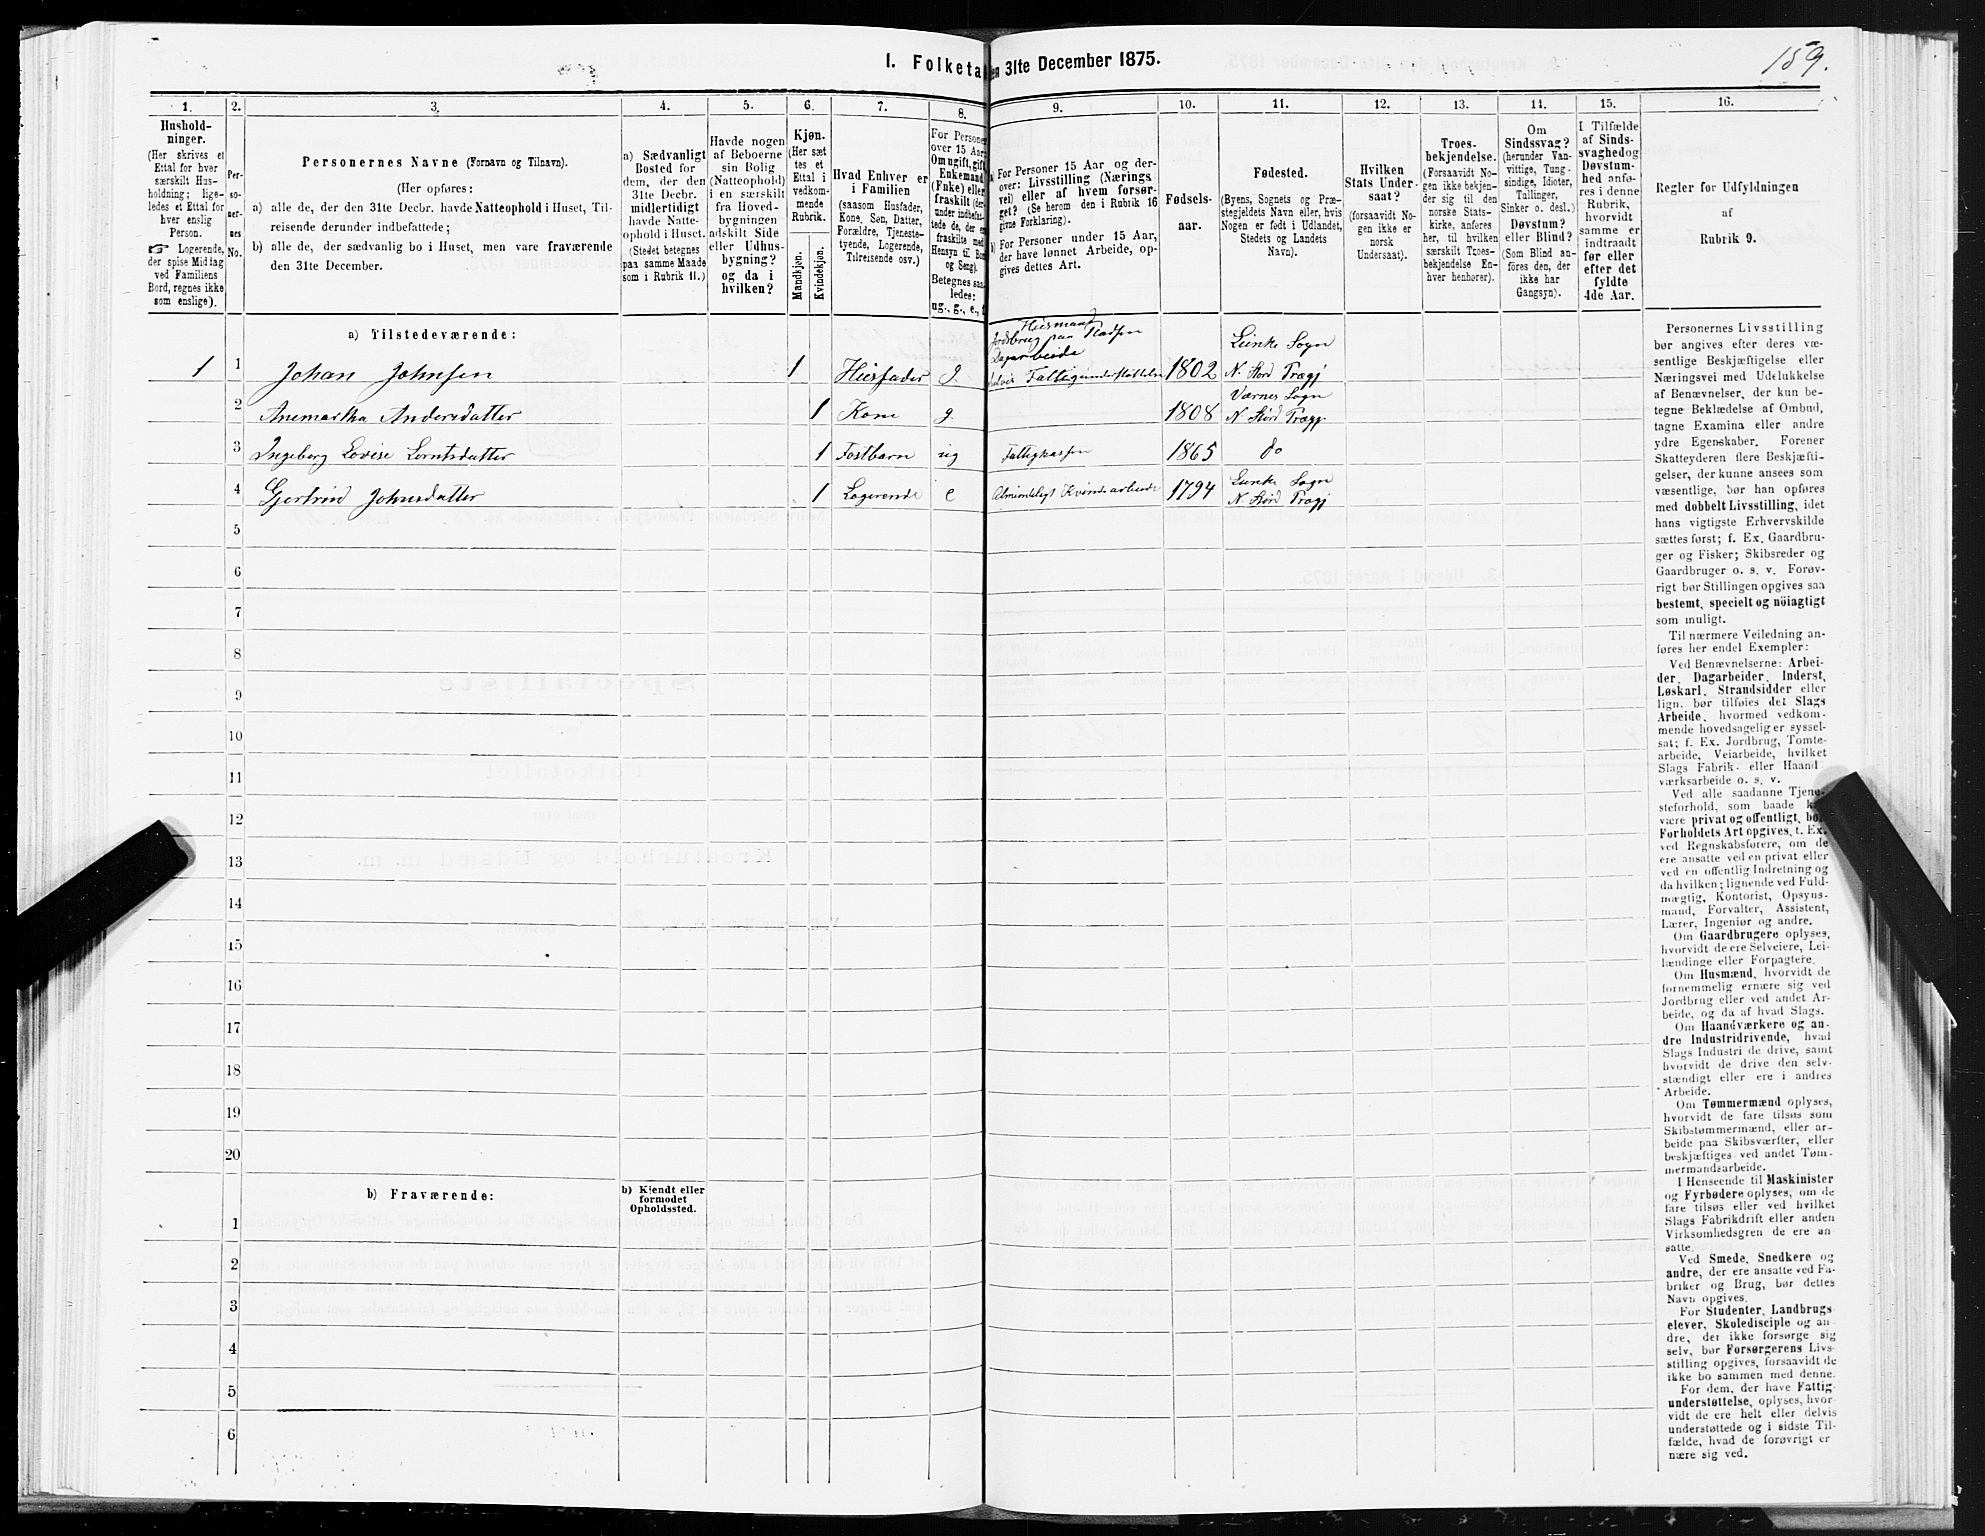 159.
I. Folketal
den 31te December 1875.
1.
2.
3.
4.
5.
6.
7.
8.
9.
10.
11.
12.
13.
14.
15.
16.
Hushold-
ninger.
(Her skrives et
Ettal for hver
særskilt Hus-
holdning; lige-
ledes et Ettal for
hver enslig
Person.
☞ Logerende,
der spise Middag
ved Familiens
Bord, regnes ikke
som enslige).
Per-
so-
ner-
nes
No.
Personernes Navne (Fornavn og Tilnavn).
(Her opføres:
a) alle de, der den 31te Decbr. havde Natteophold i Huset, Til-
reisende derunder indbefattede;
b) alle de, der sædvanlig bo i Huset, men vare fraværende
den 31te December.
a) Sædvanligt
Bosted for
dem, der den
31te Decbr.
midlertidigt
havde Natte-
ophold i Huset.
(Stedet betegnes
paa samme Maade
som i Rubrik 11.)
Havde nogen
af Beboerne
sin Bolig
(Natteophold)
i en særskilt
fra Hoved-
bygningen
adskilt Side
eller Udhus-
bygning?
og da i
hvilken?
Kjøn.
(Her sæt
tes et
Ettal i
vedkom-
mende
Rubrik.
Mandkjøn.
Kvindekjøn.
Hvad Enhver er
i Familien
(saasom Husfader,
Kone, Søn, Datter,
Forældre, Tjeneste-
tyende, Logerende,
Tilreisende osv.)
For Personer
over 15 Aar
Om ugift, gift,
Enkemand
(Enke) eller
fraskilt (der-
under indbefat-
tede de, der ere
fraskilte med
Hensyn til Bord
og Seng).
Betegnes saa-
ledes:
ug., g., e., f.
a) For Personer 15 Aar og der-
over: Livsstilling (Nærings-
vei) eller af hvem forsør-
get? (Se herom den i Rubrik 16
givne Forklaring).
b) For Personer under 15 Aar,
der have lønnet Arbeide, op-
gives dettes Art.
Fødsels-
aar.
Fødested.
(Byens, Sognets og Præ-
stegjeldets Navn eller, hvis
Nogen er født i Udlandet,
Stedets og Landets
Navn).
Hvilken
Stats Under-
saat?
(forsaavidt No-
gen ikke er
norsk
Undersaat).
Troes-
bekjendelse.
(Forsaavidt No-
gen ikke bekjen-
der sig til den
norske Stats-
kirke, anføres
her, til hvilken
særskilt Troes-
bekjendelse En-
hver henhører).
Om
Sindssvag?
(herunder Van-
vittige, Tung-
sindige, Idioter,
Tullinger,
Sinker o. desl.)
Døvstum?
eller Blind?
(Som Blind an-
føres den, der
ikke har
Gangsyn).
I Tilfælde
af Sinds-
svaghed og
Døvstum-
hed anfø-
res i denne
Rubrik,
hvorvidt
samme er
indtraadt
før eller
efter det
fyldte
4de Aar.
Regler for Udfyldningen
af
Rubrik 9.
a) Tilstedeværende:
1 1 Johan Johnsen 1 Husfader g Husmand Jordbrug paa Pladsen Dagarbeide Fattigunderstøttelse 1802 Leinke Sogn N. Stord Præg
2 Anemartha Andersdatter 1 Kone g 1808 Værnes Sogn N. Stord Præg
3 Ingeborg Lovise Lorntsdatter 1 Fostbarn ug Fattigkassen 1865 do
4 Gjertrud Johnsdatter 1 Logerende e Almindeligt Kvindearbeide 1794 Leinke Sogn N. Stord Præg
5
6
7
8
9
10
11
12
13
14
15
16
17
18
19
20
b) Fraværende:
b) Kjendt eller
formodet
Opholdssted.
1
2
3
4
5
6
Personernes Livsstilling
bør angives efter deres væ-
sentlige Beskjæftigelse eller
Næringsvei med Udelukkelse
af Benævnelser, der kun be-
tegne Beklædelse af Ombud,
tagne Examina eller andre
ydre Egenskaber. Forener
Skatteyderen flere Beskjæfti-
gelser, der kunne ansees som
væsentlige, bør han opføres
med dobbelt Livsstilling, idet
hans vigtigste Erhvervskilde
sættes først; f. Ex. Gaardbru-
ger og Fisker; Skibsreder og
Gaardbruger o. s. v. Forøv-
rigt bør Stillingen opgives saa
bestemt, specielt og nöiagtigt
som muligt.
Til nærmere Veiledning an-
føres her endel Exempler:
Ved Benævnelserne: Arbei-
der, Dagarbeider, Inderst,
Løskarl, Strandsidder eller
lign. bør tilføies det Slags
Arbeide, hvormed vedkom-
mende hovedsagelig er syssel-
sat; f. Ex. Jordbrug, Tomte-
arbeide, Veiarbeide, hvilket
Slags Fabrik- eller Haand-
værksarbeide o. s. v.
Ved alle saadanne Tjene-
steforhold, som baade kan
være privat og offentligt, bør
Forholdets Art opgives, t. Ex.
ved Regnskabsførere, om de
ere ansatte ved en privat eller
ved en offentlig Indretning og
da hvilken; lignende ved Fuld-
mægtig, Kontorist, Opsyns-
mand, Forvalter, Assistent,
Lærer, Ingeniør og andre.
Om Gaardbrugere oplyses,
hvorvidt de ere Selveiere, Lei-
lændinge eller Forpagtere.
Om Husmænd, hvorvidt de
fornemmelig ernære sig ved
Jordbrug eller ved andet Ar-
beide, og da af hvad Slags.
Om Haandværkere og an-
dre Industridrivende, hvad
Slags Industri de drive, samt
hvorvidt de drive den selv-
stændigt eller ere i andres
Arbeide.
Om Tømmermænd oplyses,
hvorvidt de fare tilsøs som
Skibstømmermænd, eller ar-
beide paa Skibsværfter, eller
beskjæftiges ved andet Tøm-
mermandsarbeide.
I Henseende til Maskinister
og Fyrbødere oplyses, om de
fare tilsøs eller ved hvilket
Slags Fabrikdrift eller anden
Virksomhedsgren de ere an-
satte.
Ved Smede, Snedkere og
andre, der ere ansatte ved Fa-
briker og Brug, bør dettes
Navn opgives.
For Studenter, Landbrugs-
elever, Skoledisciple og an-
dre, der ikke forsørge sig
selv, bør Forsørgerens Livs-
stilling opgives, forsaavidt de
ikke bo sammen med denne.
For dem, der have Fattig-
understøttelse, oplyses, hvor-
vidt de ere helt eller delvis
understøttede og i sidste Til-
fælde, hvad de forøvrigt er-
nære sig ved.